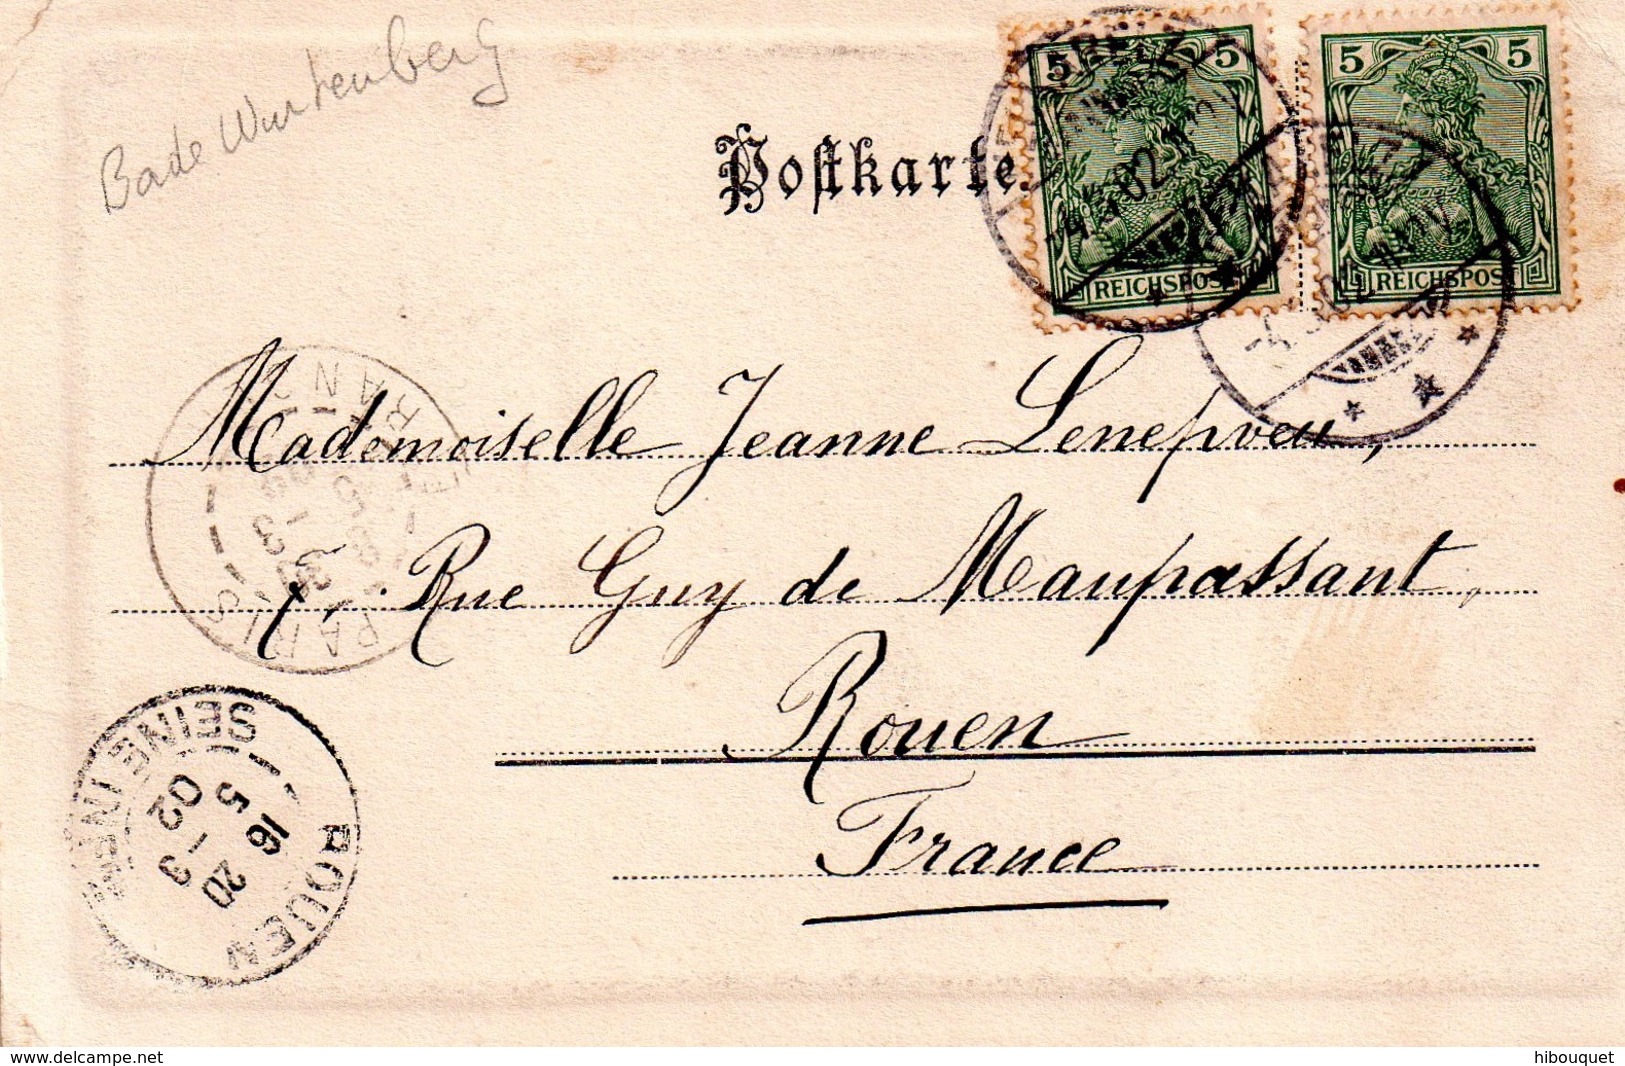 Bade Wurtenberg
Postkarte.
5 5
REICHSPOST
5 5
REICHSPOST
Mademoiselle Jeanne Lenepveu,
7, Rue Guy de Maupassant,
Rouen
France
PARIS
ROUEN
SEINE INFRE
16 20
5 - 3
02
delcampe.net
hibouquet